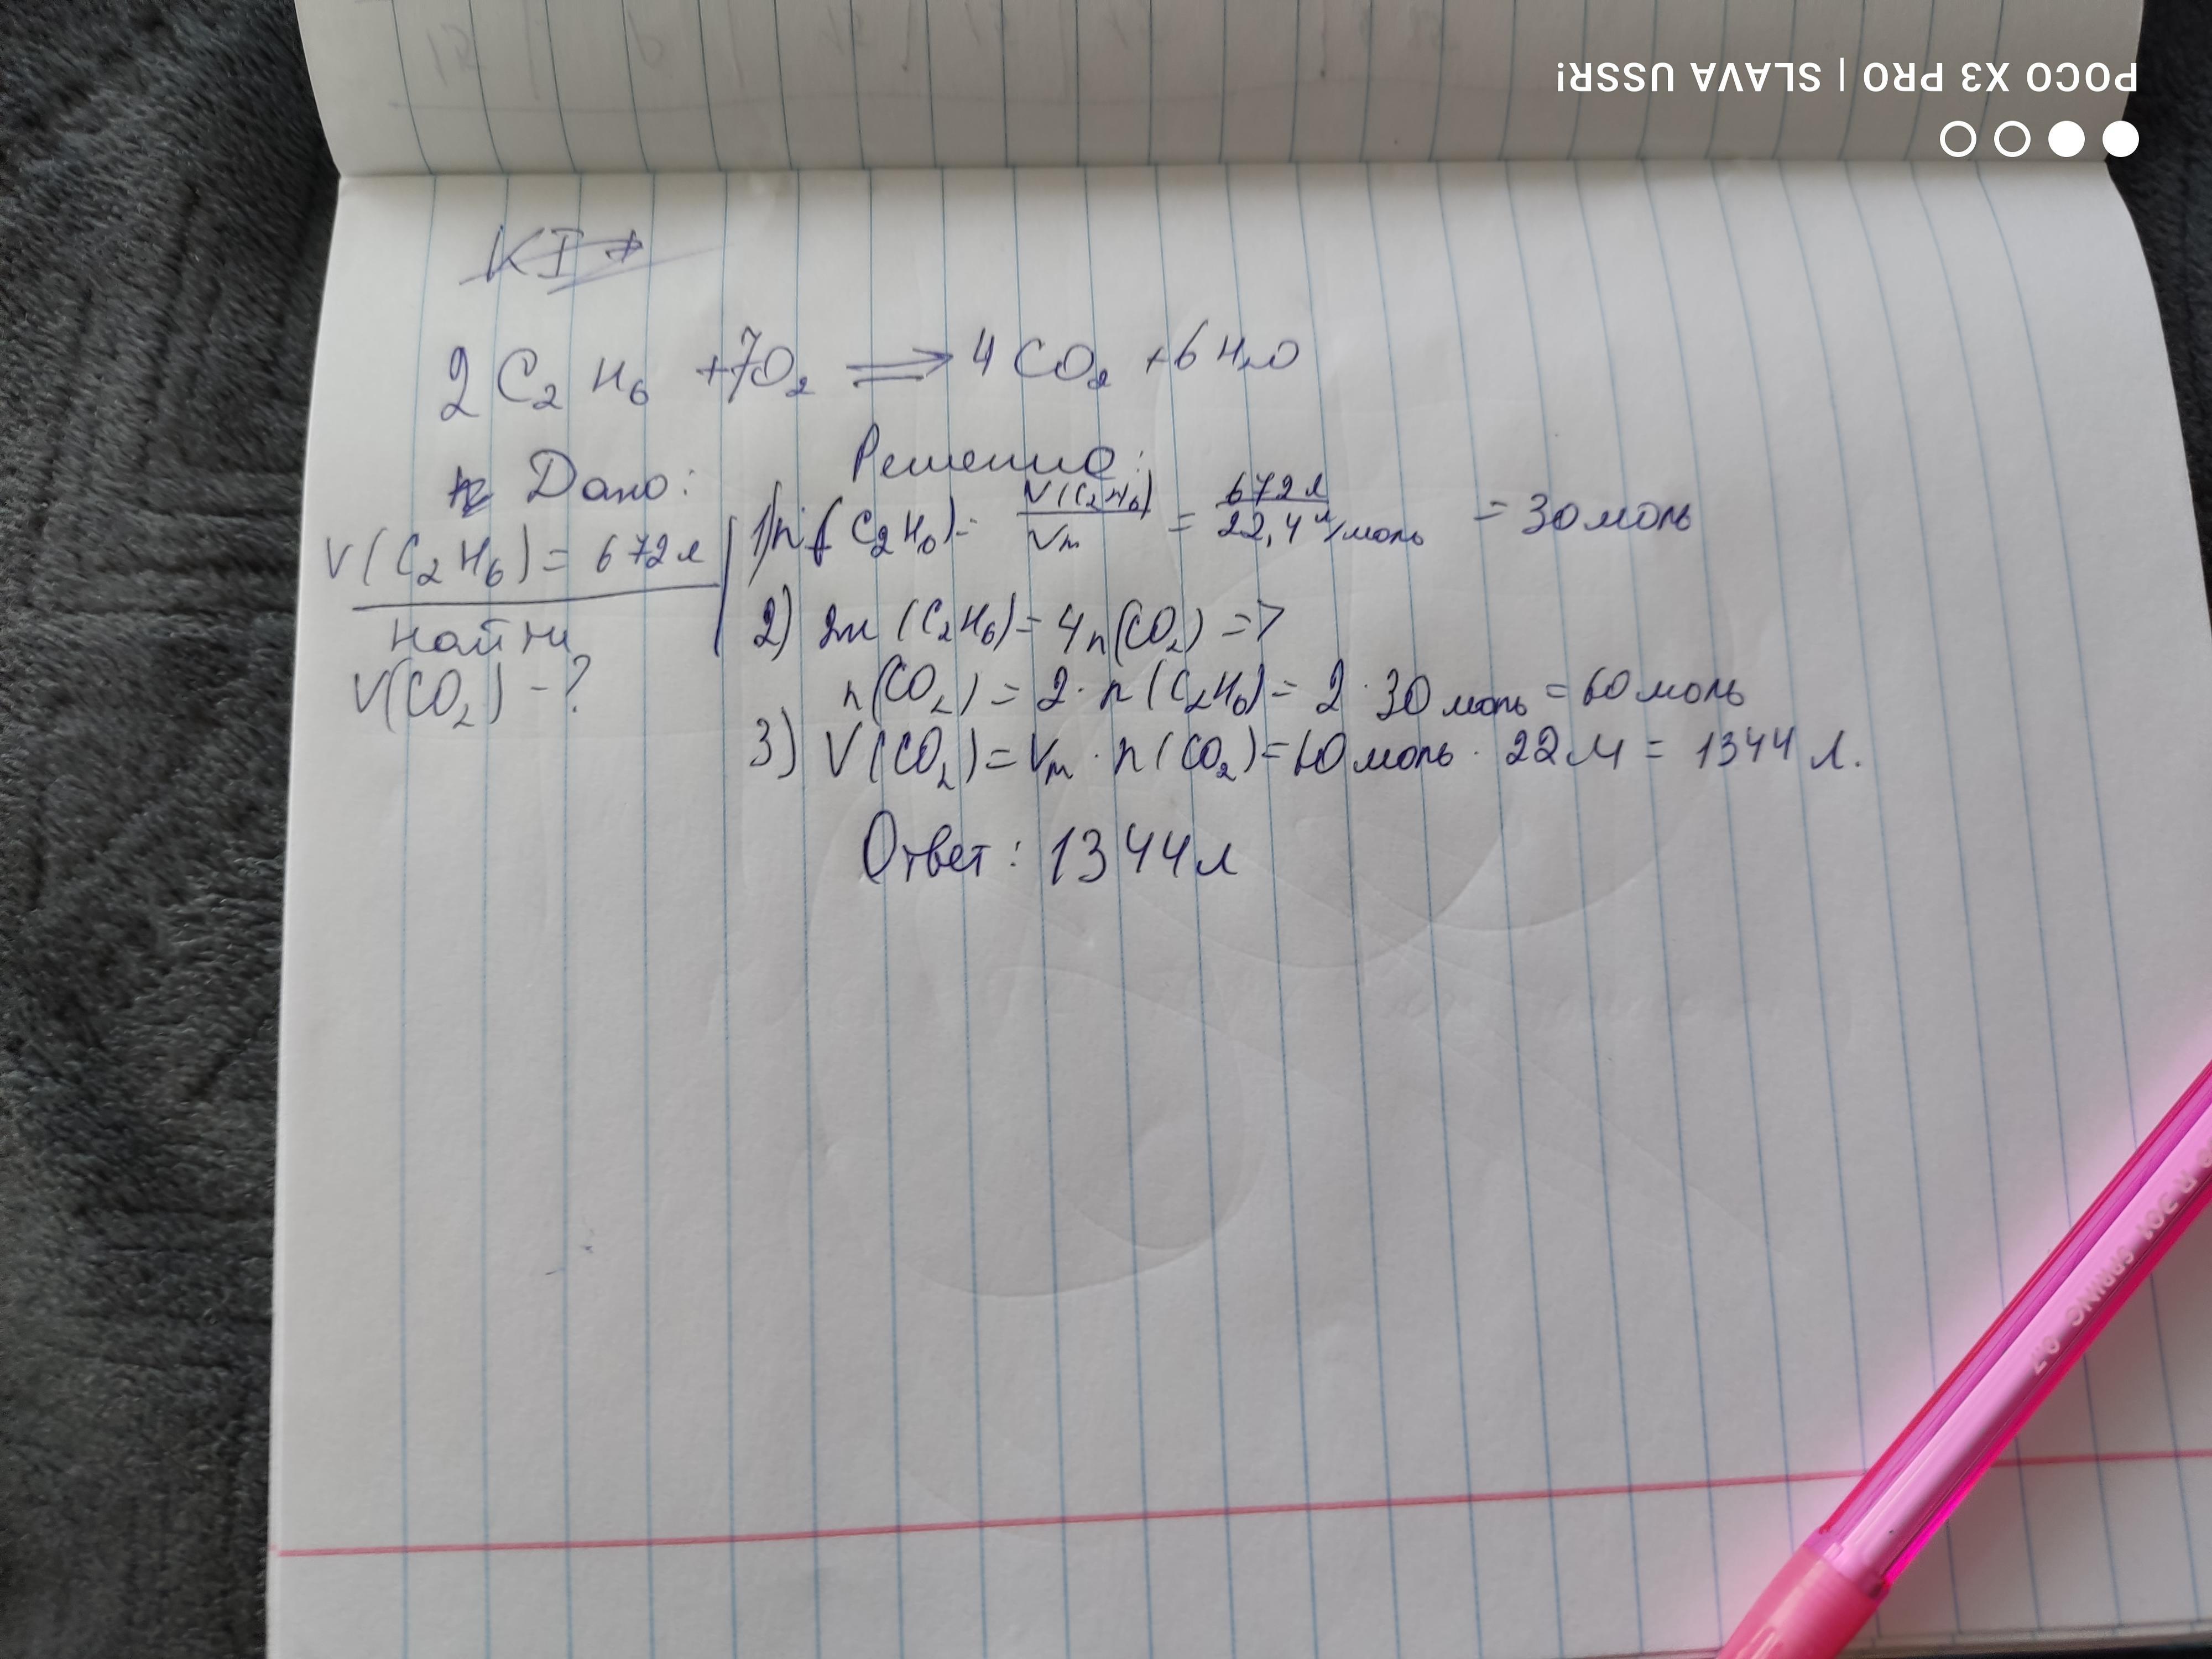 POCO X3 PRO | SLAVA USSR!
KI →
2 C₂ H₆ +7O₂ ⟹ 4 CO₂ +6 H₂O
Дано:
V(C₂H₆) = 672 л
найти
V(CO₂) - ?
Решение:
1) n(C₂H₆) = V(C₂H₆)/Vm = 672 л/22,4 л/моль = 30 моль
2) 2n (C₂H₆) = 4n(CO₂) =>
n(CO₂) = 2 · n (C₂H₆) = 2 · 30 моль = 60 моль
3) V(CO₂) = Vm · n(CO₂) = 60 моль · 22 = 1344 л.
Ответ: 1344 л
0.7